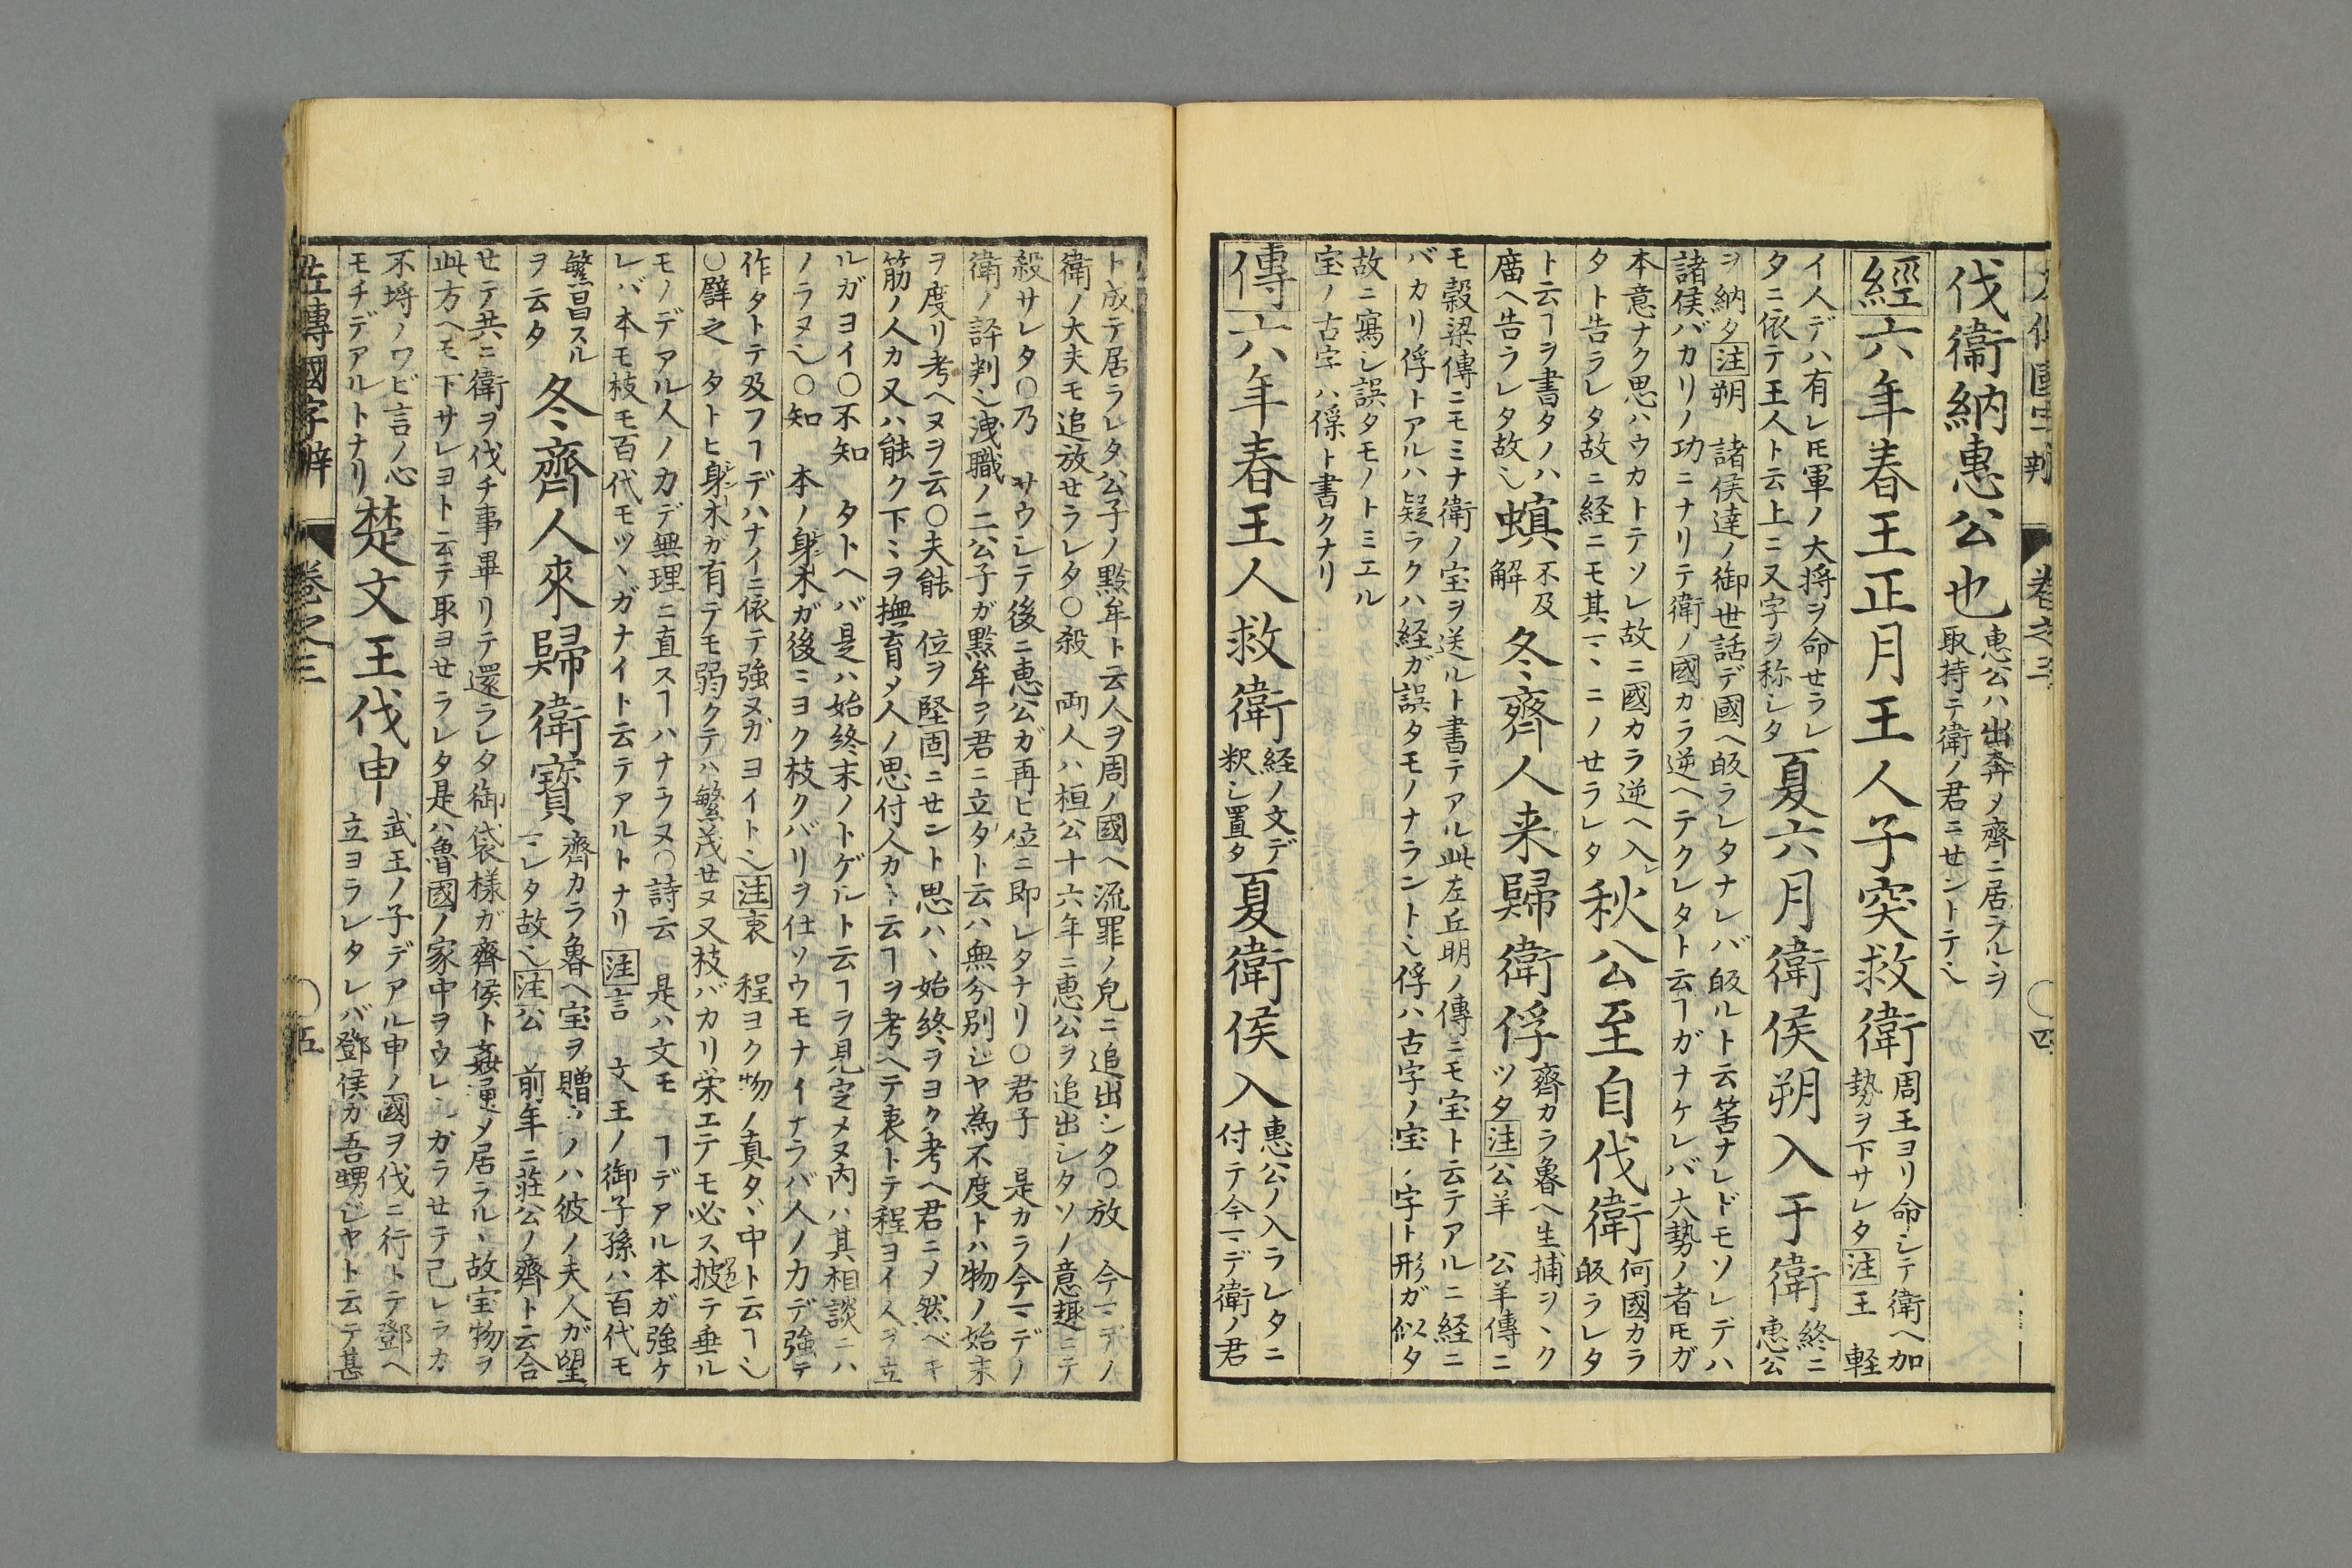 伐衞納惠公也
惠公ハ出奔メ齊ニ居ラルヽヲ
取持テ衛ノ君ニせントテ乀
經六年春王正月王人子突救衛
周王ヨリ命シテ衛ヘ加
勢ヲ下サレタ注王　軽
イ人デハ有レㇳモ軍ノ大将ヲ命せラレ
タニ依テ王人ト云上ニ又字ヲ称シタ
夏六月衛侯朔入于衛
終ニ
惠公
ヲ納タ注朔　諸侯達ノ御世話デ國ヘ皈ラレタナレバ皈ルト云筈ナレドモソレデハ
諸侯バカリノ功ニナリテ衛ノ國カラ逆ヘテクレタト云ヿガナケレバ大勢ノ者ㇳモガ
本意ナク思ハウカトテソレ故ニ國カラ逆ヘ入レ
タト告ラレタ故ニ経ニモ其ママニノせラレタ
秋公至自伐衛
何國カラ
皈ラレタ
ト云ヿヲ書タノハ
廟ヘ告ラレタ故乀
螟
不及
解
冬齊人来歸衛俘
齊カラ魯ヘ生捕ヲヽク
ツタ注公羊　公羊傳ニ
モ穀梁傳ニモミナ衛ノ宝ヲ送ルト書テアル此左丘明ノ傳ニモ宝ト云テアルニ経ニ
バカリ俘トアルハ疑ラクハ経ガ誤タモノナラントナ乀俘ハ古字ノ宝ノ字ト形ガ似タ
故ニ寫シ誤タモノトミエル
宝ノ古字ハ㑱ト書クナリ
傳六年春王人救衛
経ノ文デ
釈シ置タ
夏衛侯入
惠公ノ入ラレタニ
付テ今マデノ衛ノ君
ト成テ居ラレタ公子ノ黔牟ト云人ヲ周ノ國ヘ流罪ノ皃ニ追出シタ〇放　今マデノ
衛ノ大夫モ追放せラレタ〇殺　両人ハ桓公十六年ニ惠公ヲ追出シタソノ意趣ニテ
殺サレタ〇乃　サウシテ後ニ惠公ガ再ヒ位ニ即レタナリ〇君子　是カラ今マデノ
衛ノ評判乀洩職ノ二公子ガ黔牟ヲ君ニ立タト云ハ無分別ジヤ為不度トハ物ノ始末
ヲ度リ考ヘヌヲ云〇夫能　位ヲ堅固ニせント思ハヽ始終ヲヨク考ヘ君ニメ然ベキ
筋ノ人カ又ハ能ク下ミヲ撫育メ人ノ思付人カト云ヿヲ考ヘテ衷トテ程ヨイ人ヲ立
ルガヨイ〇不知　タトヘバ是ハ始終末ノトゲルト云ヿヲ見定メヌ内ハ其相談ニハ
ノラヌ乀〇知　本ノ身木ガ後ニヨク枝クバリヲ仕ソウモナイナラバ人ノ力デ強テ
作タトテ及フヿデハナイニ依テ強ヌガヨイト乀注衷　程ヨク物ノ真タヾ中ト云ヿ乀
〇譬之　タトヒ身木ガ有テモ弱クテハ繁茂せヌ又枝バカリ栄エテモ必ス披テ垂ル
モノデアル人ノ力デ無理ニ直スヿハナラヌ〇詩云　是ハ文王ノヿデアル本ガ強ケ
レバ本モ枝モ百代モツヾガナイト云テアルトナリ注言　文王ノ御子孫ハ百代モ
繁昌スル
ヲ云タ
冬齊人來歸衛寶
齊カラ魯ヘ宝ヲ贈ラルヽノハ彼ノ夫人ガ望
マレタ故乀注公　前年ニ荘公ノ齊ト云合
せテ共ニ衛ヲ伐チ事畢リテ還ラレタ御袋様ガ齊侯ト姦通メ居ラルヽ故宝物ヲ
此方ヘモ下サレヨト云テ取ヨせラレタ是ハ魯國ノ家中ヲウレシガラせテ己レラカ
不埒ノワビ言ノ心
モチデアルトナリ
楚文王伐申
武王ノ子デアル申ノ國ヲ伐ニ行トテ鄧ヘ
立ヨラレタレバ鄧侯カ吾甥ジヤト云テ甚
左傳國字辨　巻之三　〇五